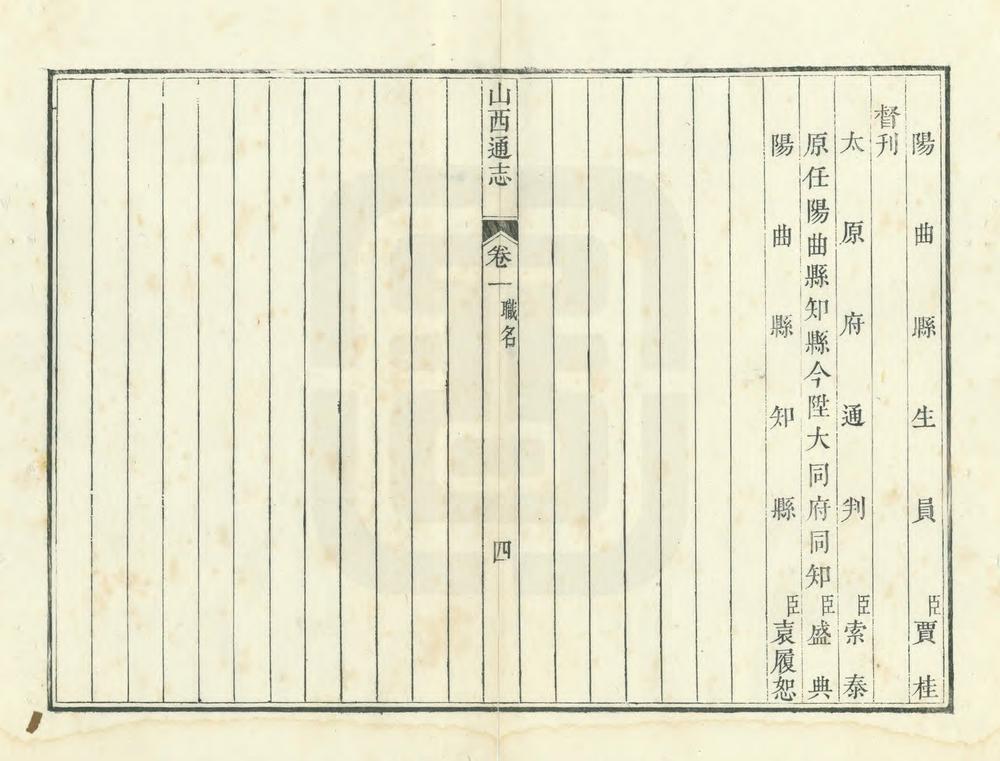 陽曲縣生員臣賈桂
督刊
太原府通判臣索泰
原任陽曲縣知縣今陞大同府同知臣盛典
陽曲縣知縣臣袁履恕
山西通志
卷一
職名
四